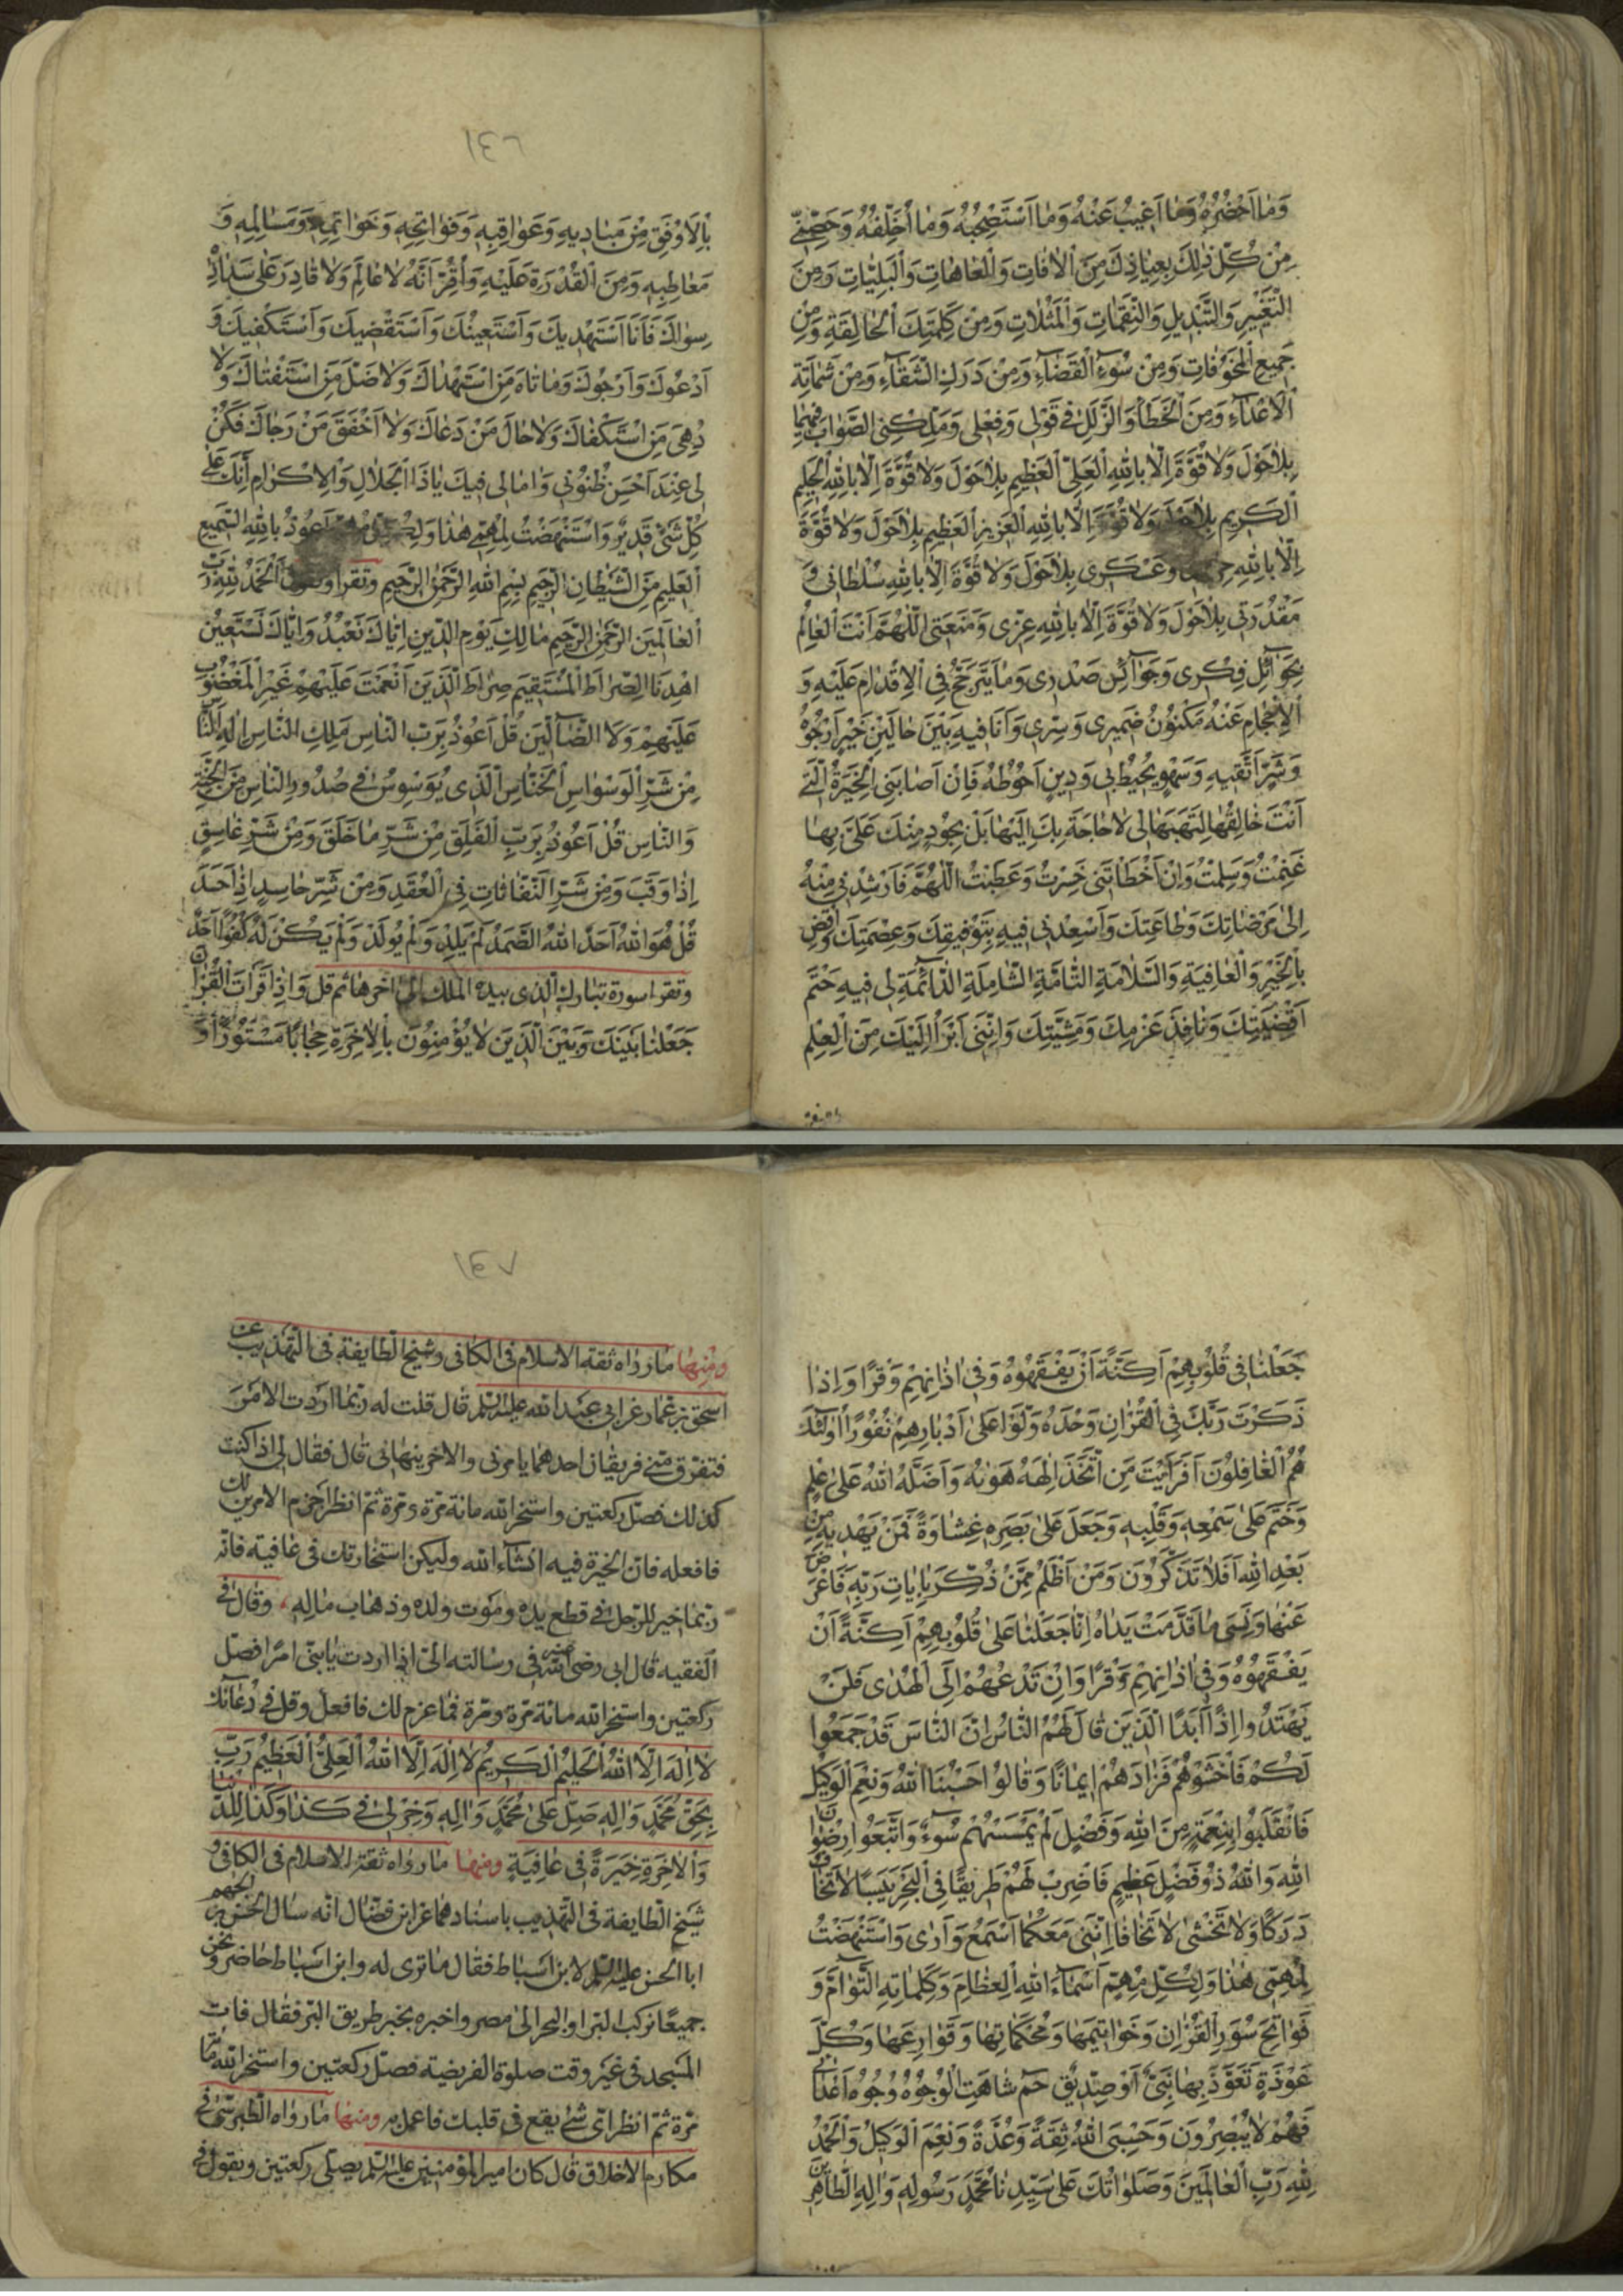 وَمَا اَحْضُرُهُ وَمَا اَغِيبُ عَنْهُ وَمَا اَسْتَصْحِبُهُ وَمَا اُخَلِّفُهُ وَحَصِّنِّي
مِنْ كُلِّ ذٰلِكَ بِعِيَاذِكَ مِنَ الْاٰفَاتِ وَالْعَاهَاتِ وَالْبَلِيَّاتِ وَمِنَ
التَّغْيِيرِ وَالتَّبْدِيلِ وَالنَّقِمَاتِ وَالْمَثُلَاتِ وَمِنْ كَلِمَتِكَ الْحَالِقَةِ وَمِنْ
جَمِيعِ الْمَخُوفَاتِ وَمِنْ سُوءِ الْقَضَاءِ وَمِنْ دَرَكِ الشَّقَاءِ وَمِنْ شَمَاتَةِ
الْاَعْدَاءِ وَمِنَ الْخَطَاءِ وَالزَّلَلِ فِي قَوْلِي وَفِعْلِي وَمَلِّكْنِي الصَّوَابَ فِيهِمَا
بِلَا حَوْلَ وَلَا قُوَّةَ اِلَّا بِاللّٰهِ الْعَلِيِّ الْعَظِيمِ بِلَا حَوْلَ وَلَا قُوَّةَ اِلَّا بِاللّٰهِ الْحَلِيمِ
الْكَرِيمِ بِلَا حَوْلَ وَلَا قُوَّةَ اِلَّا بِاللّٰهِ الْعَزِيزِ الْعَظِيمِ بِلَا حَوْلَ وَلَا قُوَّةَ
اِلَّا بِاللّٰهِ وَعَسْكَرِي بِلَا حَوْلَ وَلَا قُوَّةَ اِلَّا بِاللّٰهِ سُلْطَانِي وَ
مَقْدُرَتِي بِلَا حَوْلَ وَلَا قُوَّةَ اِلَّا بِاللّٰهِ عِزِّي وَمَنَعَتِي اللّٰهُمَّ اَنْتَ الْعَالِمُ
بِجَوَائِلِ فِكْرِي وَجَوَائِنِ صَدْرِي وَمَا يَتَرَجَّحُ فِي الْاِقْدَامِ عَلَيْهِ وَ
الْاِحْجَامِ عَنْهُ مَكْنُونُ ضَمِيرِي وَسِرِّي وَاَنَا فِيهِ بَيْنَ حَالَيْنِ خَيْرٍ اَرْجُوهُ
وَشَرٍّ اَتَّقِيهِ وَسَهْوٍ يُحِيطُ بِي وَدِينٍ اَحُوطُهُ فَاِنْ اَصَابَتْنِي الْخِيَرَةُ الَّتِي
اَنْتَ خَالِقُهَا لِتَهَبَهَا لِي لَا حَاجَةَ بِكَ اِلَيْهَا بَلْ بِجُودٍ مِنْكَ عَلَيَّ بِهَا
غَنِمْتُ وَسَلِمْتُ وَاِنْ اَخْطَاَتْنِي خَسِرْتُ وَعَطِبْتُ اللّٰهُمَّ فَاَرْشِدْنِي مِنْهُ
اِلٰى مَرْضَاتِكَ وَطَاعَتِكَ وَاَسْعِدْنِي فِيهِ بِتَوْفِيقِكَ وَعِصْمَتِكَ وَاقْضِ
بِالْخَيْرِ وَالْعَافِيَةِ وَالسَّلَامَةِ التَّامَّةِ الشَّامِلَةِ الدَّائِمَةِ لِي فِيهِ حَتْمَ
اَقْضِيَتِكَ وَنَافِذَ عَزْمِكَ وَمَشِيَّتِكَ وَاِنَّنِي اَبْرَأُ اِلَيْكَ مِنَ الْعِلْمِ
بِالْاَوْفَقِ مِنْ مَبَادِيهِ وَعَوَاقِبِهِ وَفَوَاتِحِهِ وَخَوَاتِمِهِ وَمَسَالِمِهِ وَ
مَعَاطِبِهِ وَمِنَ الْقُدْرَةِ عَلَيْهِ وَاُقِرُّ اَنَّهُ لَا عَالِمَ وَلَا قَادِرَ عَلٰى سَدَادِهِ
سِوَاكَ فَاَنَا اَسْتَهْدِيكَ وَاَسْتَعِينُكَ وَاَسْتَقْضِيكَ وَاَسْتَكْفِيكَ وَ
اَدْعُوكَ وَاَرْجُوكَ وَمَا تَاهَ مَنِ اسْتَهْدَاكَ وَلَا ضَلَّ مَنِ اسْتَفْتَاكَ وَلَا
دُهِيَ مَنِ اسْتَكْفَاكَ وَلَا حَالَ مَنْ دَعَاكَ وَلَا اَخْفَقَ مَنْ رَجَاكَ فَكُنْ
لِي عِنْدَ اَحْسَنِ ظُنُونِي وَاٰمَالِي فِيكَ يَا ذَا الْجَلَالِ وَالْاِكْرَامِ اِنَّكَ عَلٰى
كُلِّ شَيْءٍ قَدِيرٌ وَاسْتَنْهَضْتُ لِمُهِمِّي هٰذَا وَلِكُلِّ مُهِمٍّ اَعُوذُ بِاللّٰهِ السَّمِيعِ
الْعَلِيمِ مِنَ الشَّيْطَانِ الرَّجِيمِ بِسْمِ اللّٰهِ الرَّحْمٰنِ الرَّحِيمِ وتقرا وتقول اَلْحَمْدُ لِلّٰهِ رَبِّ
الْعَالَمِينَ الرَّحْمٰنِ الرَّحِيمِ مَالِكِ يَوْمِ الدِّينِ اِيَّاكَ نَعْبُدُ وَاِيَّاكَ نَسْتَعِينُ
اهْدِنَا الصِّرَاطَ الْمُسْتَقِيمَ صِرَاطَ الَّذِينَ اَنْعَمْتَ عَلَيْهِمْ غَيْرِ الْمَغْضُوبِ
عَلَيْهِمْ وَلَا الضَّالِّينَ قُلْ اَعُوذُ بِرَبِّ النَّاسِ مَلِكِ النَّاسِ اِلٰهِ النَّاسِ
مِنْ شَرِّ الْوَسْوَاسِ الْخَنَّاسِ الَّذِي يُوَسْوِسُ فِي صُدُورِ النَّاسِ مِنَ الْجِنَّةِ
وَالنَّاسِ قُلْ اَعُوذُ بِرَبِّ الْفَلَقِ مِنْ شَرِّ مَا خَلَقَ وَمِنْ شَرِّ غَاسِقٍ
اِذَا وَقَبَ وَمِنْ شَرِّ النَّفَّاثَاتِ فِي الْعُقَدِ وَمِنْ شَرِّ حَاسِدٍ اِذَا حَسَدَ
قُلْ هُوَ اللّٰهُ اَحَدٌ اَللّٰهُ الصَّمَدُ لَمْ يَلِدْ وَلَمْ يُولَدْ وَلَمْ يَكُنْ لَهُ كُفُوًا اَحَدٌ
وتقرا سورة تبارك الذى بيده الملك الى اخرها ثم قل وَاِذَا قَرَاْتَ الْقُرْاٰنَ
جَعَلْنَا بَيْنَكَ وَبَيْنَ الَّذِينَ لَا يُؤْمِنُونَ بِالْاٰخِرَةِ حِجَابًا مَسْتُورًا وَ
جَعَلْنَا فِي قُلُوبِهِمْ اَكِنَّةً اَنْ يَفْقَهُوهُ وَفِي اٰذَانِهِمْ وَقْرًا وَاِذَا
ذَكَرْتَ رَبَّكَ فِي الْقُرْاٰنِ وَحْدَهُ وَلَّوْا عَلٰى اَدْبَارِهِمْ نُفُورًا اُولٰئِكَ
هُمُ الْغَافِلُونَ اَفَرَاَيْتَ مَنِ اتَّخَذَ اِلٰهَهُ هَوٰيهُ وَاَضَلَّهُ اللّٰهُ عَلٰى عِلْمٍ
وَخَتَمَ عَلٰى سَمْعِهِ وَقَلْبِهِ وَجَعَلَ عَلٰى بَصَرِهِ غِشَاوَةً فَمَنْ يَهْدِيهِ مِنْ
بَعْدِ اللّٰهِ اَفَلَا تَذَكَّرُونَ وَمَنْ اَظْلَمُ مِمَّنْ ذُكِّرَ بِاٰيَاتِ رَبِّهِ فَاَعْرَضَ
عَنْهَا وَنَسِيَ مَا قَدَّمَتْ يَدَاهُ اِنَّا جَعَلْنَا عَلٰى قُلُوبِهِمْ اَكِنَّةً اَنْ
يَفْقَهُوهُ وَفِي اٰذَانِهِمْ وَقْرًا وَاِنْ تَدْعُهُمْ اِلَى الْهُدٰى فَلَنْ
يَهْتَدُوا اِذًا اَبَدًا الَّذِينَ قَالَ لَهُمُ النَّاسُ اِنَّ النَّاسَ قَدْ جَمَعُوا
لَكُمْ فَاخْشَوْهُمْ فَزَادَهُمْ اِيمَانًا وَقَالُوا حَسْبُنَا اللّٰهُ وَنِعْمَ الْوَكِيلُ
فَانْقَلَبُوا بِنِعْمَةٍ مِنَ اللّٰهِ وَفَضْلٍ لَمْ يَمْسَسْهُمْ سُوءٌ وَاتَّبَعُوا رِضْوَانَ
اللّٰهِ وَاللّٰهُ ذُو فَضْلٍ عَظِيمٍ فَاضْرِبْ لَهُمْ طَرِيقًا فِي الْبَحْرِ يَبَسًا لَا تَخَافُ
دَرَكًا وَلَا تَخْشٰى لَا تَخَافَا اِنَّنِي مَعَكُمَا اَسْمَعُ وَاَرٰى وَاسْتَنْهَضْتُ
لِمُهِمِّي هٰذَا وَلِكُلِّ مُهِمٍّ اَسْمَاءَ اللّٰهِ الْعِظَامَ وَكَلِمَاتِهِ التَّوَامَّ وَ
فَوَاتِحَ سُوَرِ الْقُرْاٰنِ وَخَوَاتِيمَهَا وَمُحْكَمَاتِهَا وَقَوَارِعَهَا وَكُلَّ
عَوْذَةٍ تَعَوَّذَ بِهَا نَبِيٌّ اَوْ صِدِّيقٌ حٰمٓ شَاهَتِ الْوُجُوهُ وُجُوهُ اَعْدَائِي
فَهُمْ لَا يُبْصِرُونَ وَحَسْبِيَ اللّٰهُ ثِقَةً وَعُدَّةً وَنِعْمَ الْوَكِيلُ وَالْحَمْدُ
لِلّٰهِ رَبِّ الْعَالَمِينَ وَصَلَوَاتُكَ عَلٰى سَيِّدِنَا مُحَمَّدٍ رَسُولِهِ وَاٰلِهِ الطَّاهِرِينَ
ومنها ما رواه ثقة الاسلام فى الكافى وشيخ الطايفة فى التهذيب عن
اسحق بن عمار عن ابى عبد الله عليه السلم قال قلت له ربما اردت الامر
فتفرق منى فريقان احدهما يامرنى والاخر ينهانى قال فقال لى اذا كنت
كذلك فصل ركعتين واستخر الله مائة مرة ومرة ثم انظر احزم الامرين لك
فافعله فان الخيرة فيه انشاء الله ولتكن استخارتك فى عافية فانه
ربما خير للرجل فى قطع يده وموت ولده وذهاب ماله وقال فى
الفقيه قال ابى رضى الله عنه فى رسالته الى اذا اردت يا بنى امرا فصل
ركعتين واستخر الله مائة مرة ومرة فما عزم لك فافعل وقل فى دعائك
لَا اِلٰهَ اِلَّا اللّٰهُ الْحَلِيمُ الْكَرِيمُ لَا اِلٰهَ اِلَّا اللّٰهُ الْعَلِيُّ الْعَظِيمُ رَبِّ
بِحَقِّ مُحَمَّدٍ وَاٰلِهِ صَلِّ عَلٰى مُحَمَّدٍ وَاٰلِهِ وَخِرْ لِي فِي كَذَا وَكَذَا لِلدُّنْيَا
وَالْاٰخِرَةِ خِيَرَةً فِي عَافِيَةٍ ومنها ما رواه ثقة الاسلام فى الكافى و
شيخ الطايفة فى التهذيب باسنادهما عن ابن فضال انه سال الحسن بن الجهم
ابا الحسن عليه السلم لابن اسباط فقال ما ترى له وابن اسباط حاضر ونحن
جميعا نركب البر او البحر الى مصر واخبره بخبر طريق البر فقال فات
المسجد فى غير وقت صلوة الفريضة فصل ركعتين واستخر الله مائة
مرة ثم انظر اى شئ يقع فى قلبك فاعمل به ومنها ما رواه الطبرسى فى
مكارم الاخلاق قال كان امير المؤمنين عليه السلم يصلى ركعتين ويقول فى